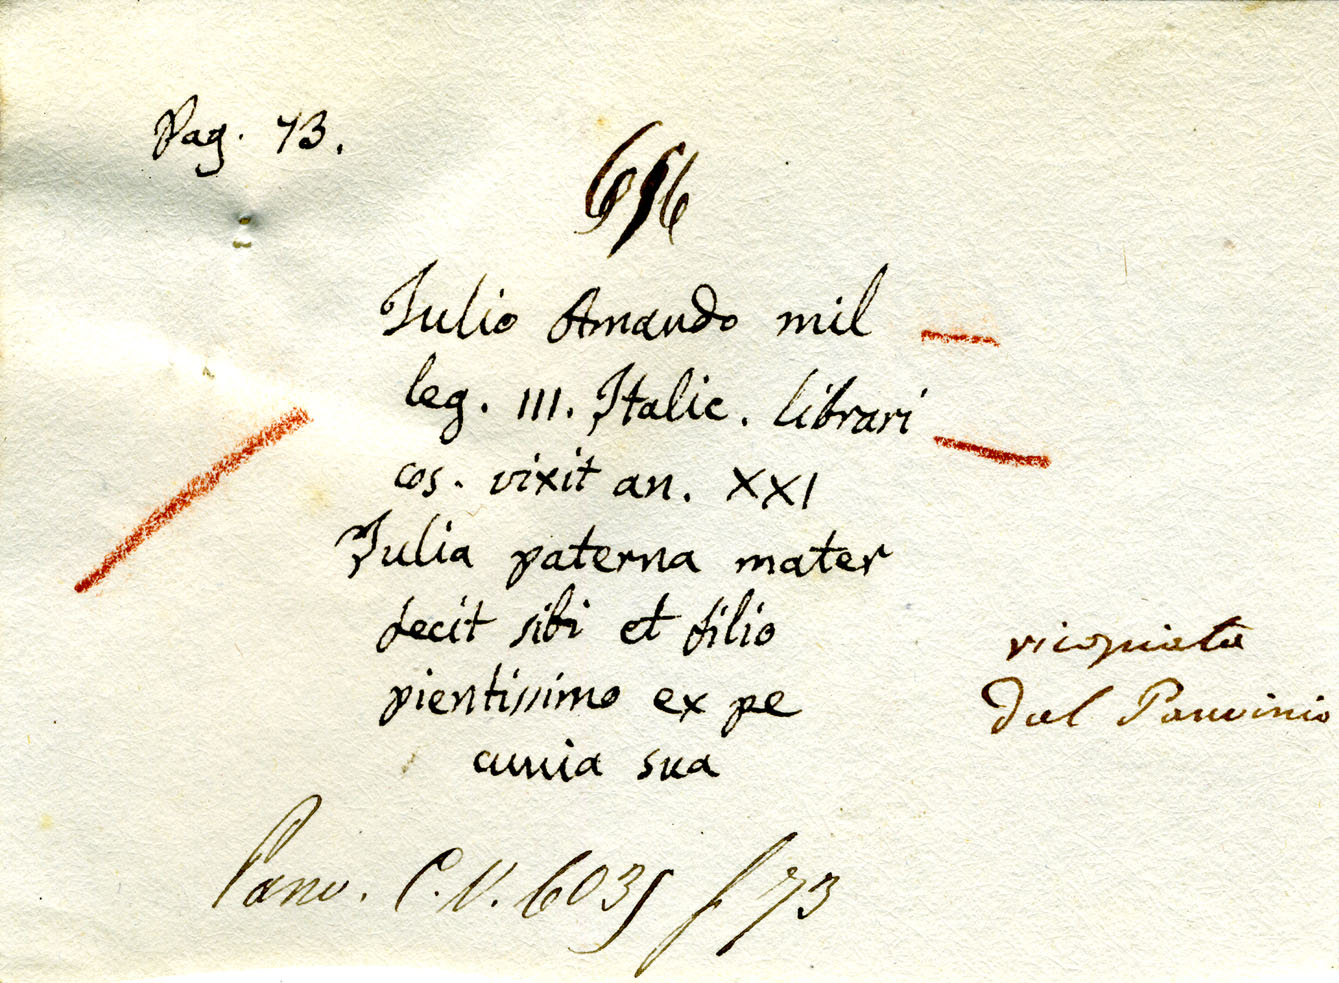 Pag. 73.
656
Iulio Amando mil
leg. III. Italic. librari
cos. vixit an. XXI
Iulia paterna mater
fecit sibi et filio
pientissimo ex pe
cunia sua
ricopiata
dal Panvinio
Panv. C.V. 6035 f 73